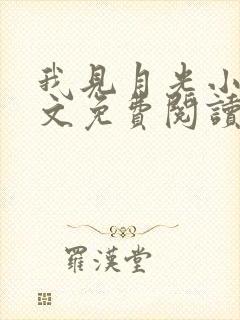 我見自光小
文免費閱讀
羅漢堂